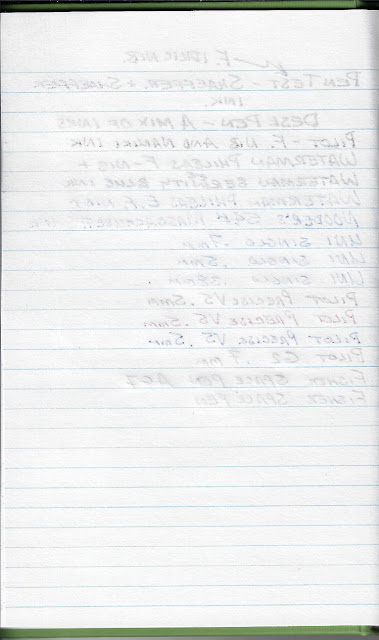 F. ITALIC NIB.
PEN TEST - SHAEFFER + SHAEFFER
INK.
DESK PEN - A MIX OF INKS
PILOT - F. NIB AND NAMIKI INK
WATERMAN PHILEAS F-NIB +
WATERMAN SERENITY BLUE INK
WATERMAN PHILEAS E.F. NIB
NOODLER'S 54th MASSACHUSETTS INK
UNI SINGLO .7mm
UNI SINGLO .5mm
UNI SINGLO .38mm
PILOT PRECISE V5 .5mm
PILOT PRECISE V5 .5mm
PILOT PRECISE V5 .5mm
PILOT G2 .7mm
FISHER SPACE PEN AG7
FISHER SPACE PEN